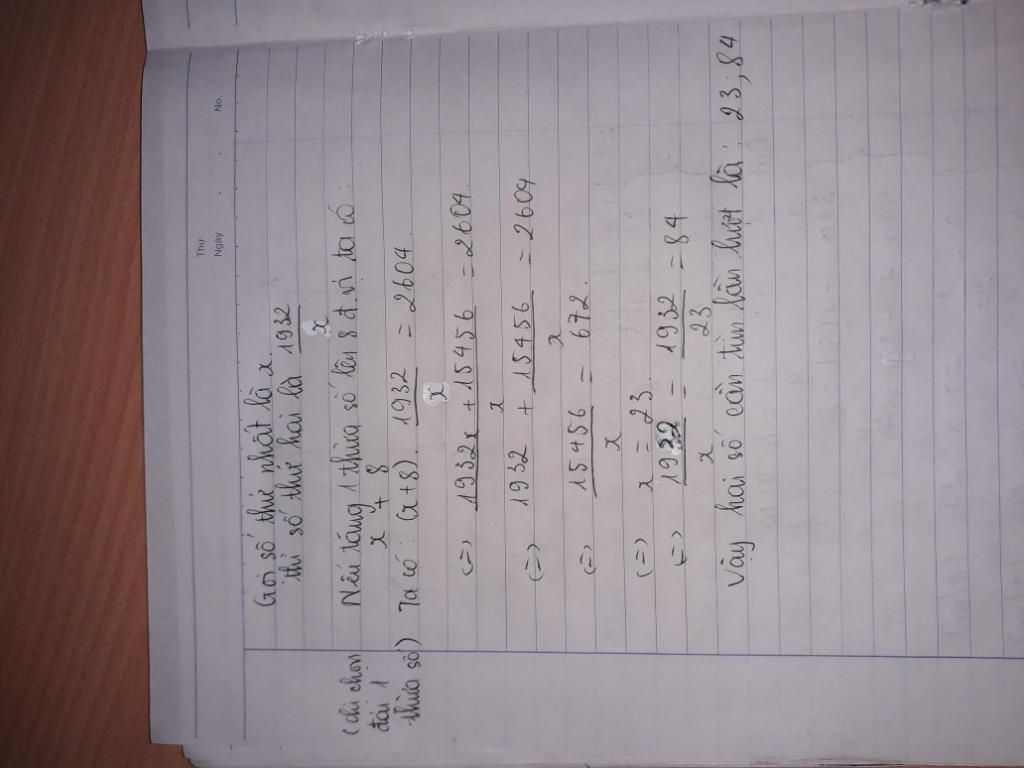 Thứ
Ngày . . No.
Gọi số thứ nhất là x.
thì số thứ hai là 1932/x
(chỉ chọn đại 1 thừa số)
Nếu tăng 1 thừa số lên 8 đ.vị ta có:
x + 8
Ta có: (x+8). 1932/x = 2604.
(=) (1932x + 15456)/x = 2604.
(=) 1932 + 15456/x = 2604
(=) 15456/x = 672.
(=) x = 23.
(=) 1932/x = 1932/23 = 84
Vậy hai số cần tìm lần lượt là: 23; 84